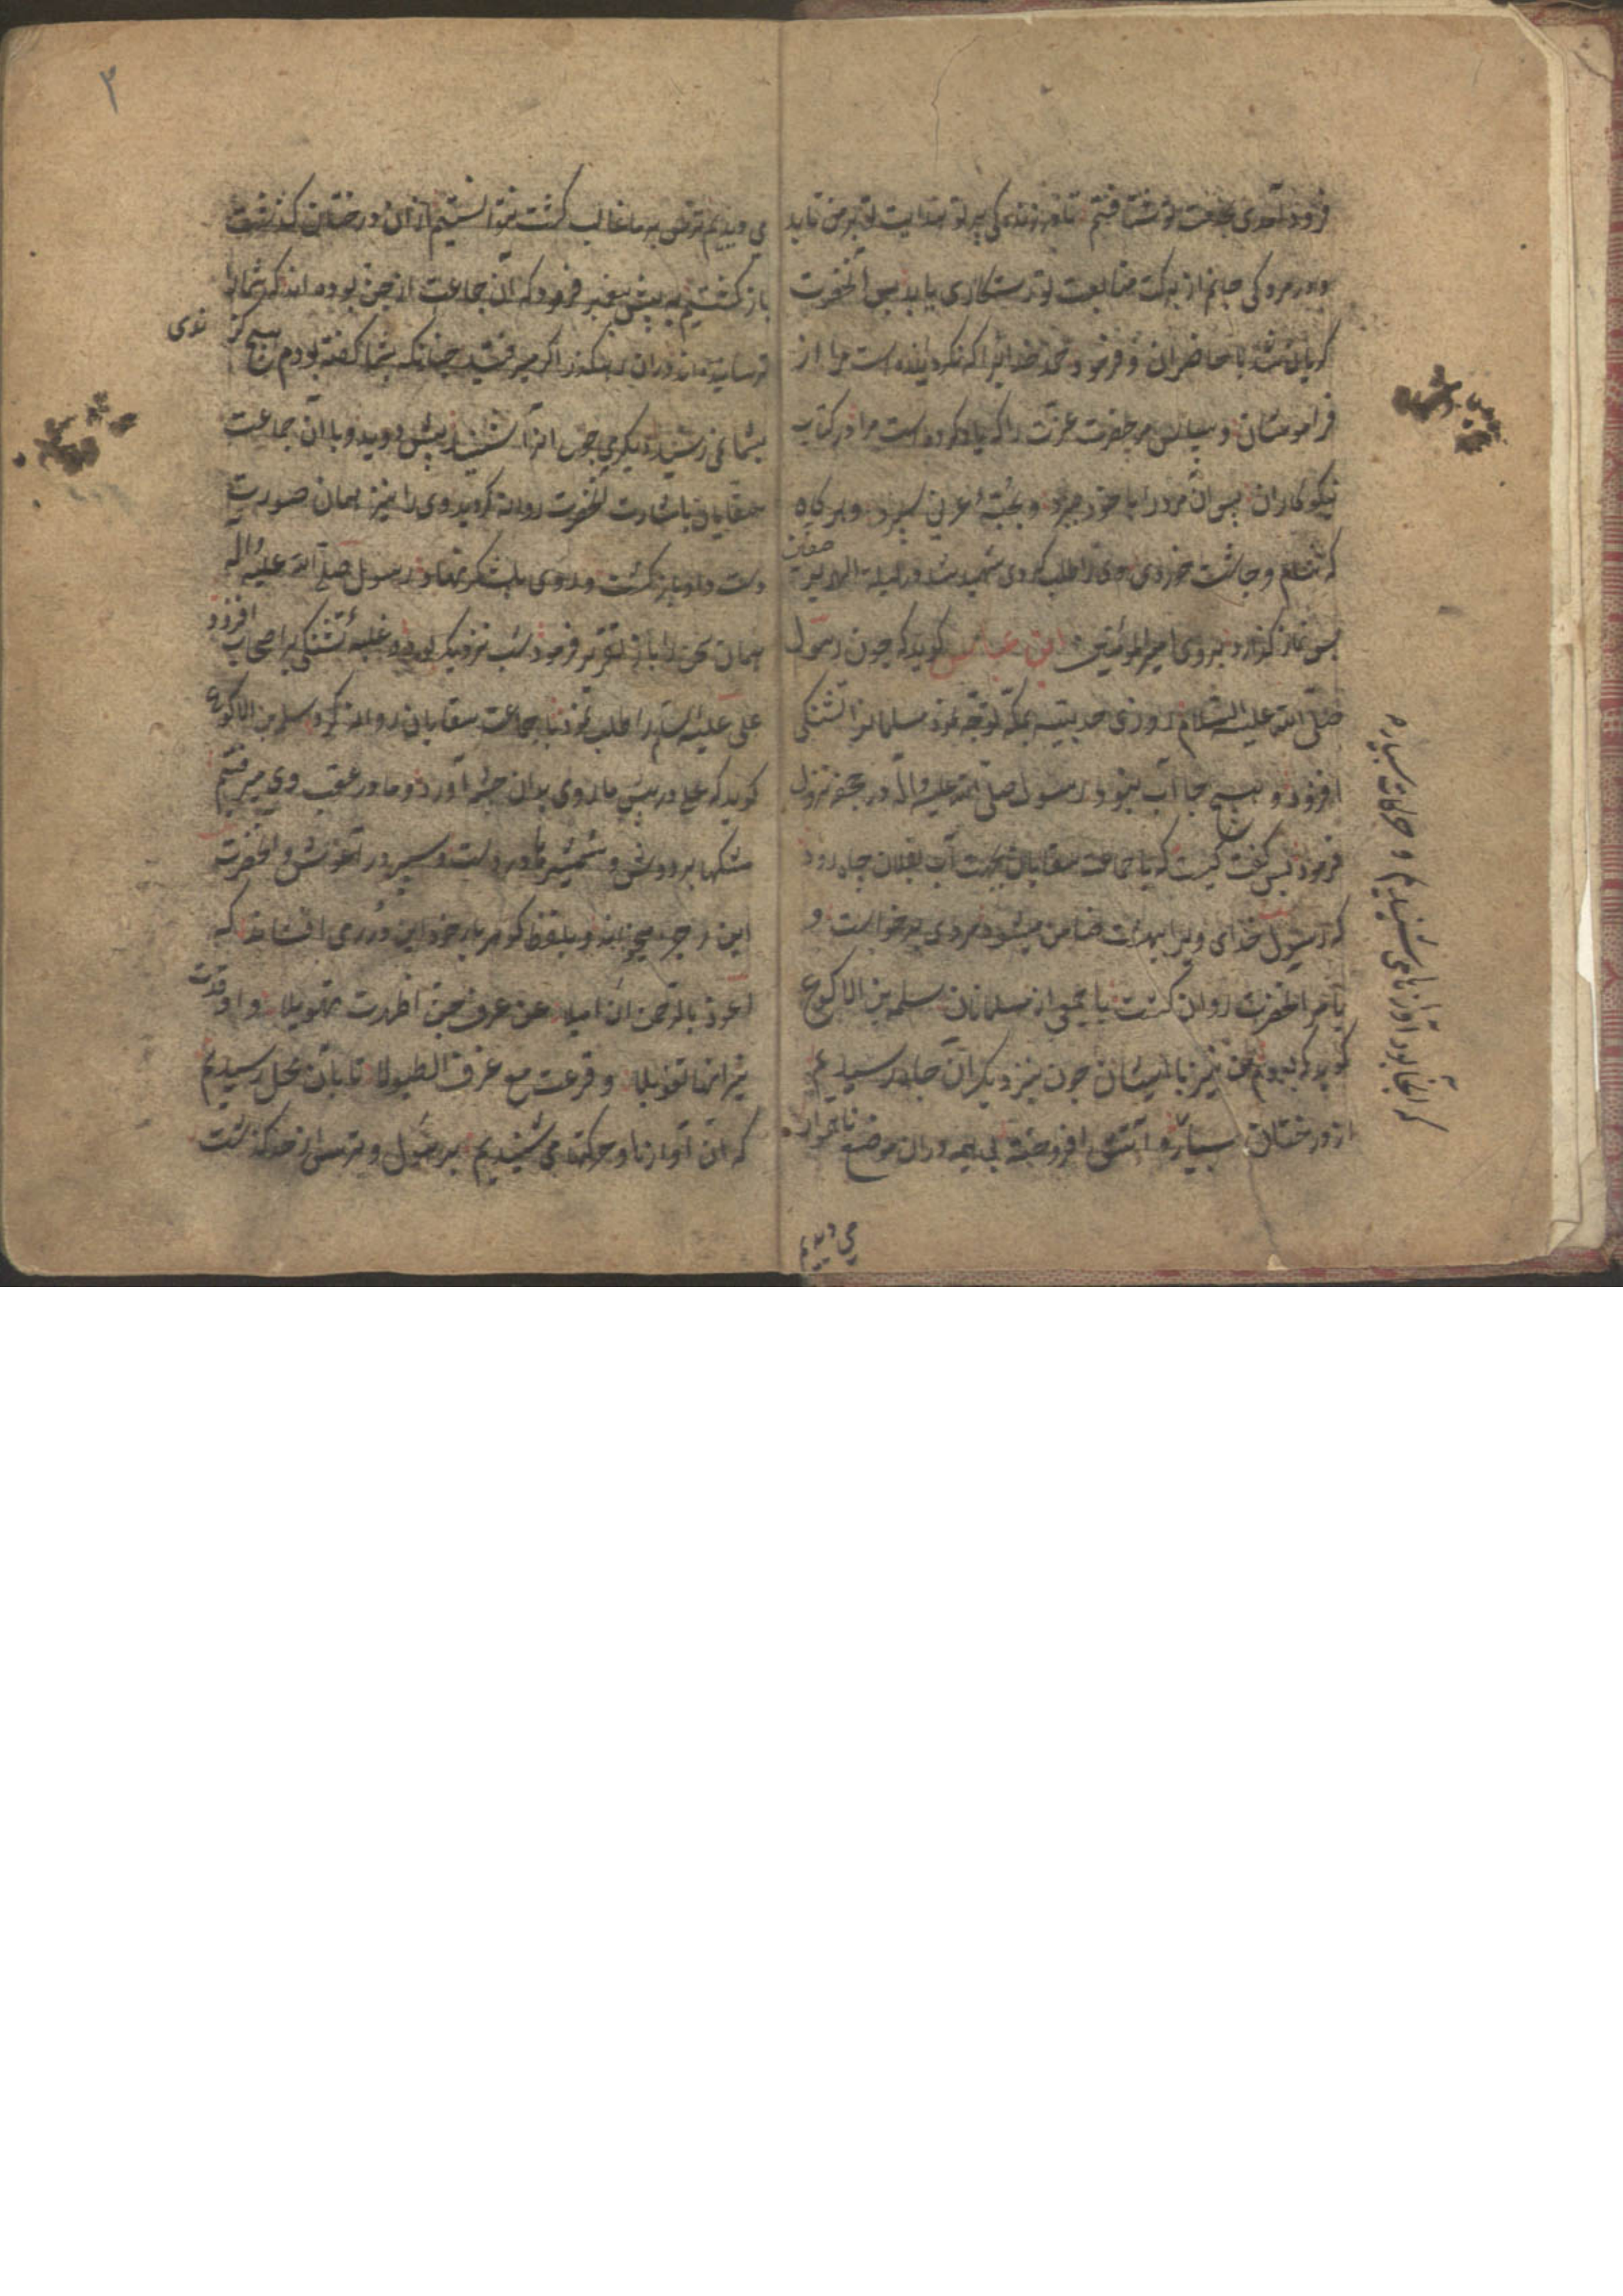 فرود آمدی بخدمت تو شتافتم تا در زندگی پرتو هدایت تو بر من تابد
و در مردگی جانم از برکت متابعت تو رستکاری یابد پس آنحضرت
کریان شد با حاضران و فرمود حمد خدایرا که نکردانیده است مرا از
فراموشان و سپاس مر حضرت عزت را که یاد کرده است مرا در کتاب
نیکوکاران پس آن مرد را با خود ببرد و بحبه عرنی سپرد و هر کاه
که شام و چاشت خوردی وی را طلب کردی شهید شد در لیلة الهریر
صفین
پس نماز کزارد بر وی امیرالمؤمنین ابن عباس کوید که چون رسول
صلی الله علیه السلام روزی حدیبیه بمکه توجه نمود مسلمانرا تشنکی
افزود و هیچ جا آب نبود رسول صلی الله علیه واله در جحفه نزول
فرمود پس کفت کیست که با جماعت سقایان بجهت آب بفلان چاه رود
که رسول خدای ویرا ببهشت ضامن میشود مردی برخواست و
بامر انحضرت روان کشت با جمعی از مسلمانان سلمه بن الاکوع
کوید که بودم من نیز با ایشان چون بنزدیک آن چاه رسیدیم
از درختان بسیار و آتشی افروخته بی هیمه در ان موضع
که انجا بود آوازهای شنیدیم و حرکات بسیاره
می دیدیم
۲
می دیدیم ترس بر ما غالب کشت نتوانستیم از ان درختان کذشت
باز کشتیم به پیش پیغمبر فرمود که آن جماعت از جن بوده اند که شمارا
ترسانیده اند در ان رهکذر اکر میرفتید چنانکه بشما کفته بودم هیچ کزندی
بشما نمی رسید دیکری چون انرا شنید پیش دوید و با آن جماعت
سقایان باشارت آنحضرت روانه کردید وی را نیز همان صورت
دست داد باز کشت و روی بلشکر نهاد رسول صلی الله علیه واله
همان سخن را باز تقریر فرمود شب نزدیک بود و غلبه تشنکی بر اصحاب افزود
علی علیه السلم را طلب نمود با جماعت سقایان روانه کرد سلمه بن الاکوع
کوید که علی در پیش ما روی بدان چشمه آورد و ما در عقب وی میرفتیم
مشکها بر دوش و شمشیرها در دست و سپر در آغوش و آنحضرت
این رجز میخواند و بلفظ کوهر بار خود این درر می افشاند که
اعوذ بالرحمن ان امیلا عن عرف جن اظهرت تهویلا و اوقدت
نیرانها تعویلا و قرعت مع عزف الطبولا تا بآن محل رسیدیم
که آن آوازها و حرکتها می شنیدیم بر هول و ترس از حد کذشت